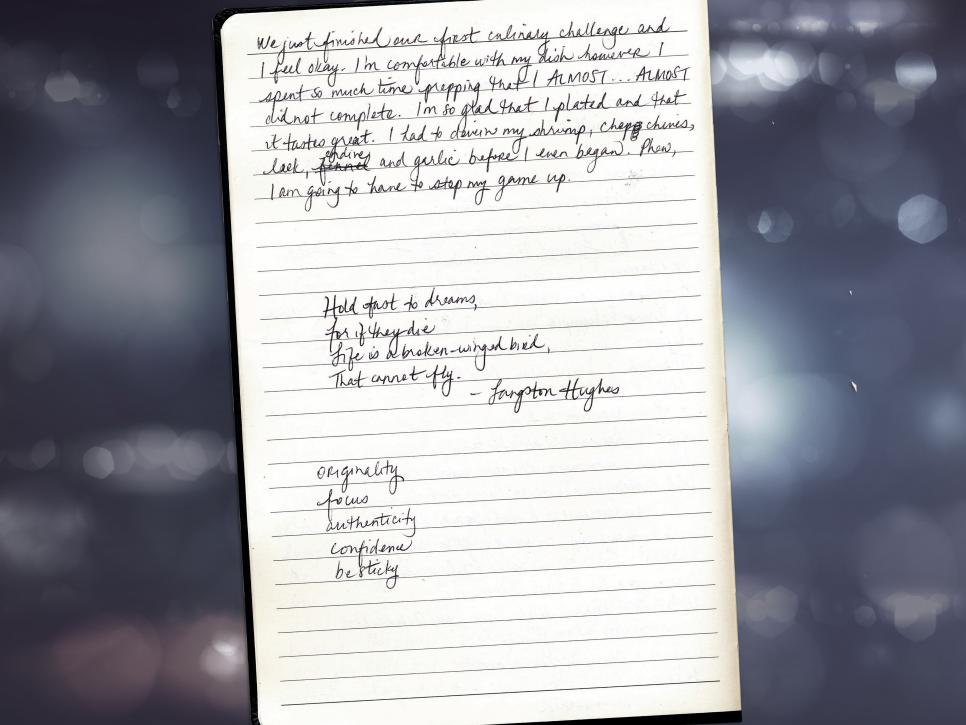 We just finished our first culinary challenge and
I feel okay. I'm comfortable with my dish however I
spent so much time prepping that I ALMOST... ALMOST
did not complete. I'm so glad that I plated and that
it tastes great. I had to devein my shrimp, chop chives,
leek, fennel endives and garlic before I even began. Phew,
I am going to have to step my game up.
Hold fast to dreams,
for if they die
Life is a broken-winged bird,
That cannot fly.
- Langston Hughes
originality
focus
authenticity
confidence
be sticky